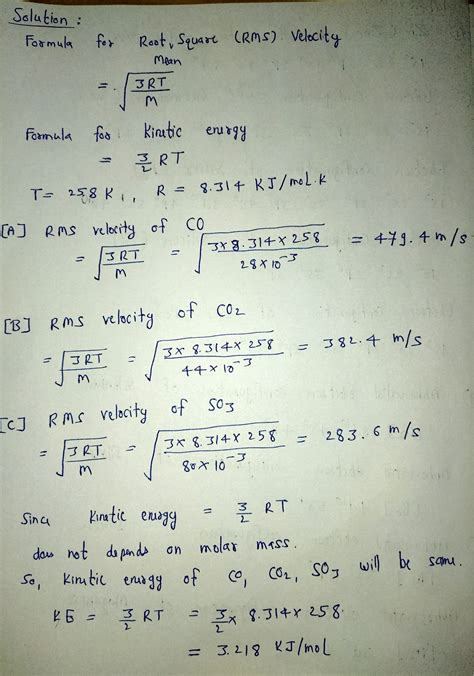 Solution :
Formula for Root, Square (RMS) Velocity
Mean
= √3RT/M
Formula for Kinetic energy
= 3/2 RT
T= 258 K , R = 8.314 KJ/moL.K
[A] RMS velocity of CO
= √3RT/M = √3×8.314×258/28×10⁻³ = 479.4 m/s
[B] RMS velocity of CO2
= √3RT/M = √3×8.314×258/44×10⁻³ = 382.4 m/s
[C] RMS velocity of SO3
= √3RT/M = √3×8.314×258/80×10⁻³ = 283.6 m/s
Since Kinetic energy = 3/2 RT
does not depends on molar mass.
So, Kinetic energy of CO, CO2, SO3 will be same.
KE = 3/2 RT = 3/2 × 8.314×258.
= 3.218 KJ/moL